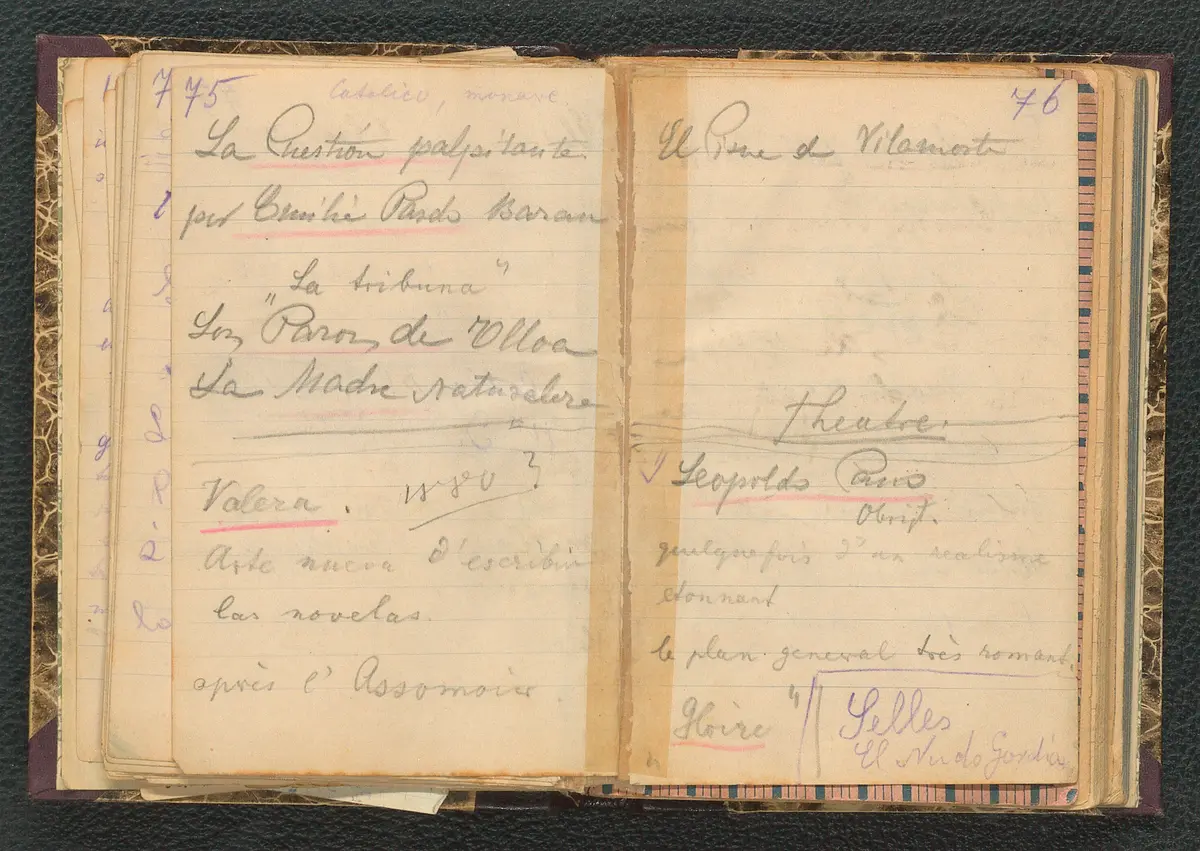 75
Catolico, monarc
La Cuestión palpitante.
por Emilia Pardo Bazan
"La tribuna"
Los Pazos de Ulloa
La Madre naturaleze
Valera.
Arte nuevo d'escribir
las novelas.
après l'Assomoir.
76
El de Vilamorta
Theatre.
Leopoldo Cano
quelquefois d'un realisme
etonnant
le plan general très romant.
Gloire "
Selles
El Nudo Gordia